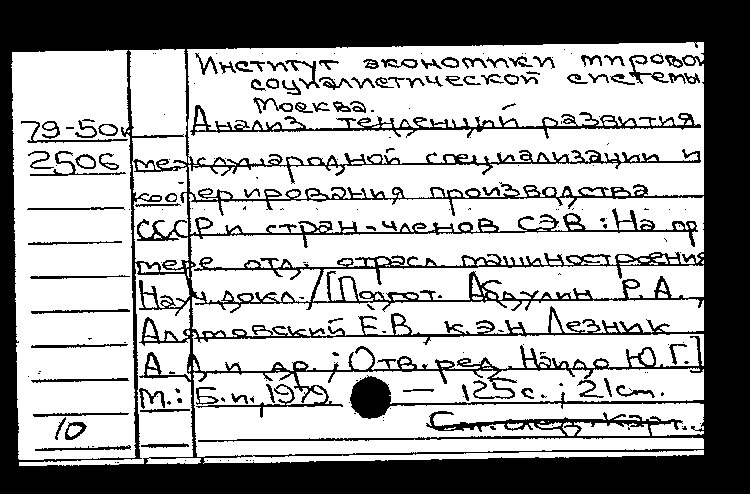 Институт экономики мировой
социалистической системы.
Москва.
79-50к Анализ тенденций развития
2506 международной специализации и
кооперирования производства
СССР и стран-членов СЭВ : На при
мере отд. отрасл машиностроения
Науч. докл. / [Подгот. Абдулин Р.А.,
Алямовский Е.В., к.э.н Лезник
А.Д. и др. ; Отв. ред. Найдо Ю.Г.]
М.: Б.и., 1979 — 125 с. ; 21 см.
10 См. след. карт.